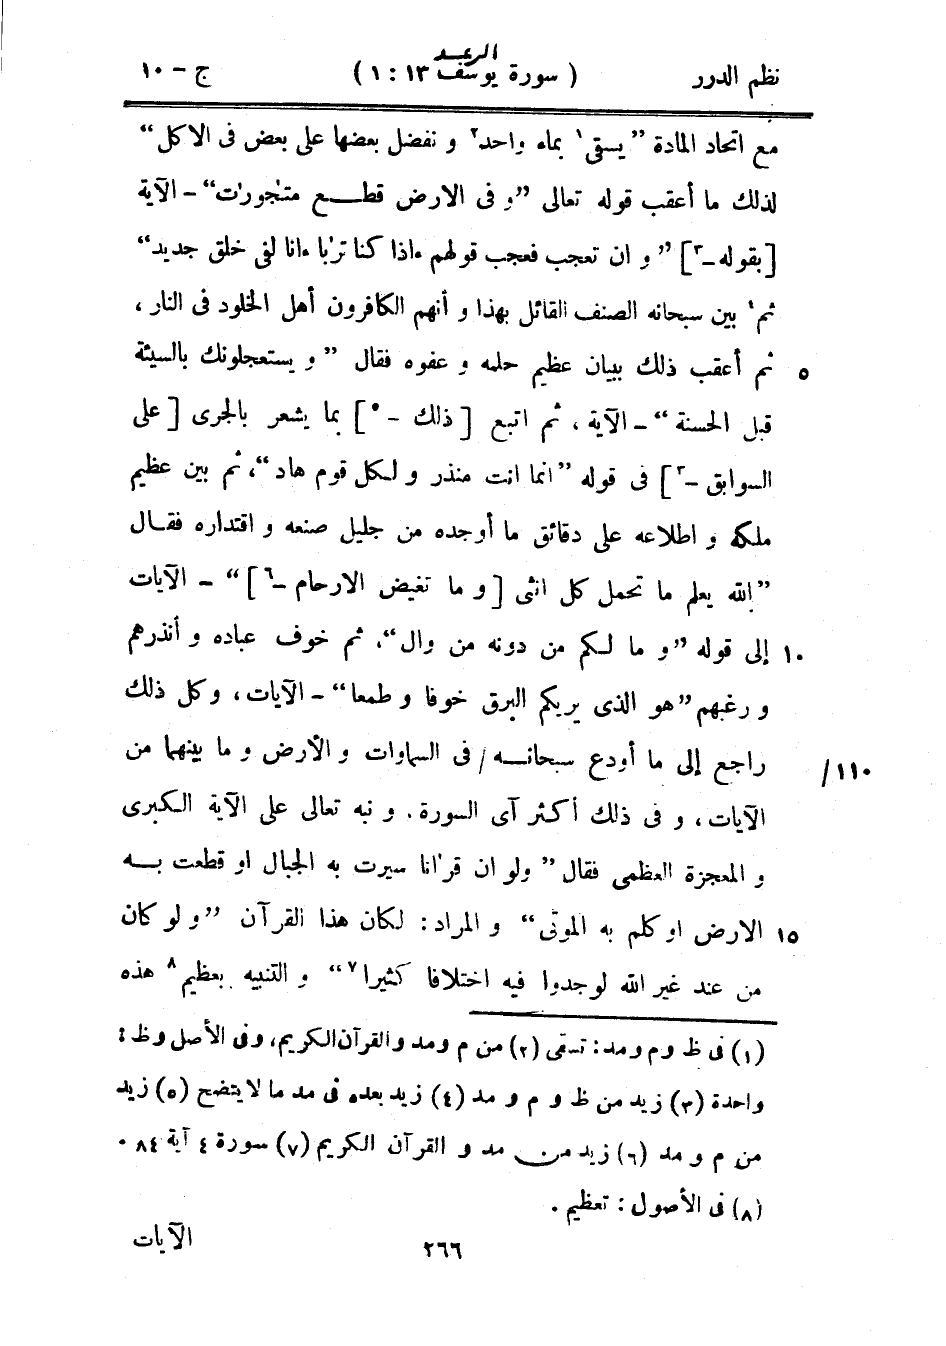 نظم الدرر ( سورة يوسف ١٣ : ١ ) ج - ١٠
الرعد
مع اتحاد المادة ”يسقى١ بماء واحد٢ و نفضل بعضها على بعض فى الاكل“
لذلك ما أعقب قوله تعالى ”و فى الارض قطـع متجٰورٰت“ - الآية
[ بقوله -٣ ] ”و ان تعجب فعجب قولهم ءاذا كنا ترٰبا ءانا لفى خلق جديد“
ثم٤ بين سبحانه الصنف القائل بهذا و أنهم الكافرون أهل الخلود فى النار ،
٥ ثم أعقب ذلك ببيان عظيم حلمه و عفوه فقال ”و يستعجلونك بالسيئة
قبل الحسنة“ - الآية ، ثم اتبع [ ذلك -٥ ] بما يشعر بالجرى [ على
السوابق -٣ ] فى قوله ”انما انت منذر و لـكل قوم هاد“، ثم بين عظيم
ملكه و اطلاعه على دقائق ما أوجده من جليل صنعه و اقتداره فقـال
”الله يعلم ما تحمل كل انثى [ و ما تغيض الارحام -٦ ]“ - الآيات
١٠ إلى قوله ”و ما لـكم من دونه من وال“، ثم خوف عباده و أنذرهم
و رغبهم ”هو الذى يريكم البرق خوفا و طمعا“ - الآيات ، وكل ذلك
١١٠/ راجع إلى ما أودع سبحانـه / فى السماوات و الأرض و ما بينهما من
الآيات ، و فى ذلك أكثر آى السورة . و نبه تعالى على الآية الـكبرى
و المعجزة العظمى فقال ”ولو ان قرٰانا سيرت به الجبال او قطعت بـه
١٥ الارض او كلم به الموتٰى“ و المراد : لكان هذا القرآن ”و لو كان
من عند غير الله لوجدوا فيه اختلافا كثيرا٧“ و التنبيه بعظيم٨ هذه
(١) فى ظ و م و مد : تسقى (٢) من م ومد والقرآن الكريم، وفى الأصل وظ :
واحدة (٣) زيد من ظ و م و مد (٤) زيد بعده فى مد ما لا يتضح (٥) زيد
من م و مد (٦) زيد من مد و القرآن الكريم (٧) سورة ٤ آية ٨٤ .
(٨) فى الأصول : تعظيم .
الآيات
٢٦٦